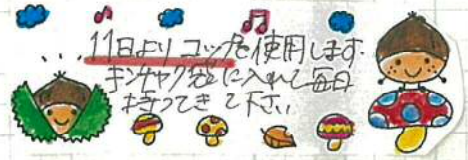 ...11日より コップを使用します。
キンチャク袋に入れて毎日
持ってきて下さい